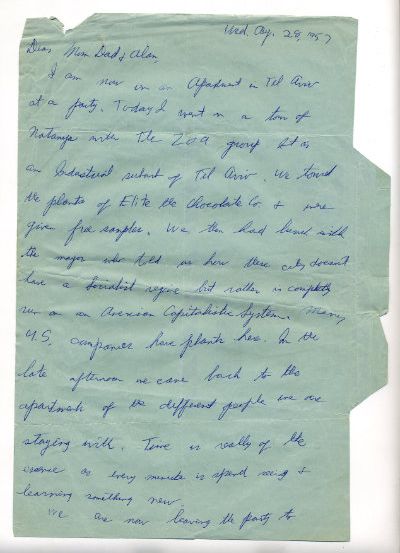 Wed. Aug. 28, 1957
Dear Mom Dad & Alan,
I am now in an Apartment in Tel Aviv
at a party. Today I went on a tour of
Natanya with the ZOA group. It is
an Industrial suburb of Tel Aviv. We toured
the plants of Elite the Chocolate Co. & were
given free samples. We then had lunch with
the mayor who told us how these city doesn't
have a Socialist regime but rather is completely
run on an American Capitalistic System. Many
U.S. companies have plants here. In the
late afternoon we came back to the
apartments of the different people we are
staying with. Time is really of the
essence as every minute is spend seeing &
learning something new.
We are now leaving the party to